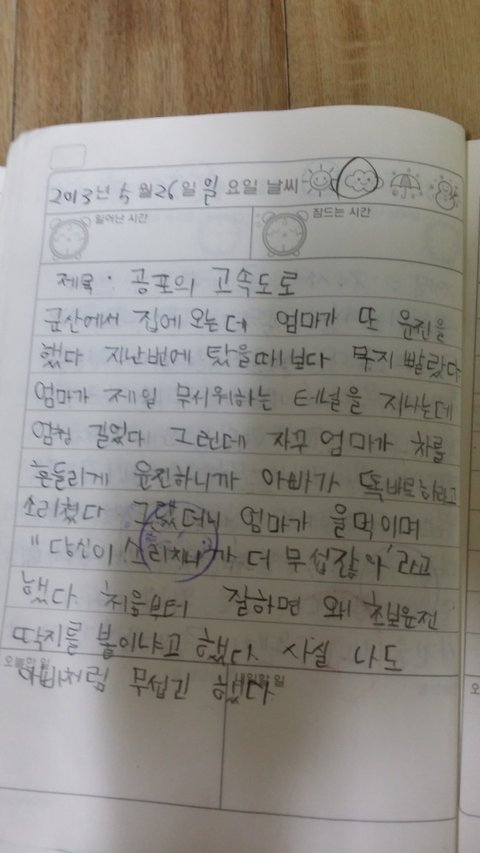 2013년 5월 26일 일요일 날씨
일어난 시간 잠드는 시간
제목 : 공포의 고속도로
군산에서 집에 오는데 엄마가 또 운전을
했다 지난번에 탔을때보다 무지 빨랐다
엄마가 제일 무서워하는 터널을 지나는데
엄청 길었다 그런데 자꾸 엄마가 차를
흔들리게 운전하니까 아빠가 똑바로하라고
소리쳤다 그랬더니 엄마가 울먹이며
"당신이 소리치니까 더 무섭잖아"라고
했다. 처음부터 잘하면 왜 초보운전
딱지를 붙이냐고 했다. 사실 나도
오늘한일 내일할일
아빠처럼 무섭긴 했다